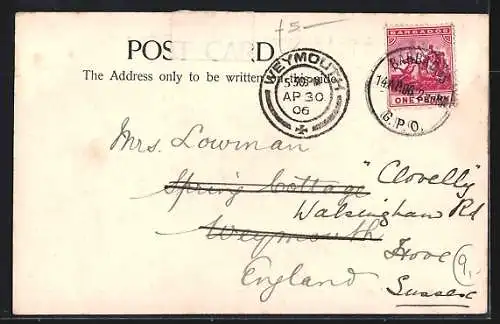 £5—
POST CARD
The Address only to be written on this side.
WEYMOUTH
5.30 PM
AP 30
06
BARBADOS
ONE PENNY
BARBADOS
G.P.O.
Mrs. Lowman
Spring Cottage
"Clovelly"
Walsingham Rd
Weymouth
Hove
England
Sussex
9,-